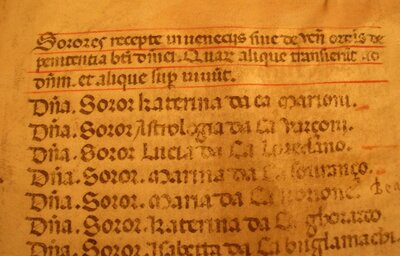 Sorores recepte in veneciis siue de ven̄ ordīs de
penitentia bti dnici. Quar̄ alique transierūt ad
dn̄m. et alique sup̄ uiuūt.
Dn̄a. Soror katerina da ca marioni.
Dn̄a. Soror Astrologia da ca
Dn̄a. Soror Lucia da ca loredano.
Dn̄a. Soror. Marina da ca
Dn̄a. Soror. Maria da ca
Dn̄a. Soror. katerina da ca
Dn̄a. Soror. Isabetta da ca buglamachi.